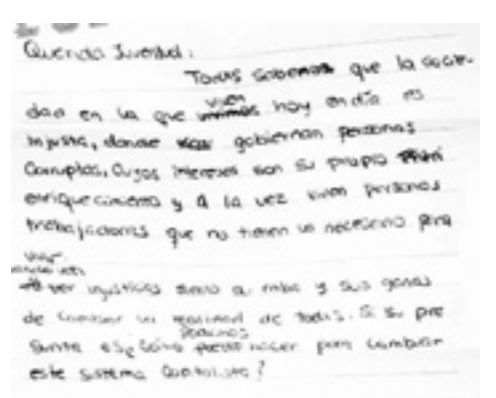 Querida Juventud:
Todas sabemos que la socie-
dad en la que viven hoy en día es
injusta, donde gobiernan personas
corruptas, cuyos intereses son su propio
enriquecimiento y a la vez viven personas
trabajadoras que no tienen lo necesario para
vivir.
ver injusticias a rabia y sus ganas
de cambiar la realidad de todas. Si su pre
gunta es ¿Cómo podemos hacer para cambiar
este sistema capitalista?